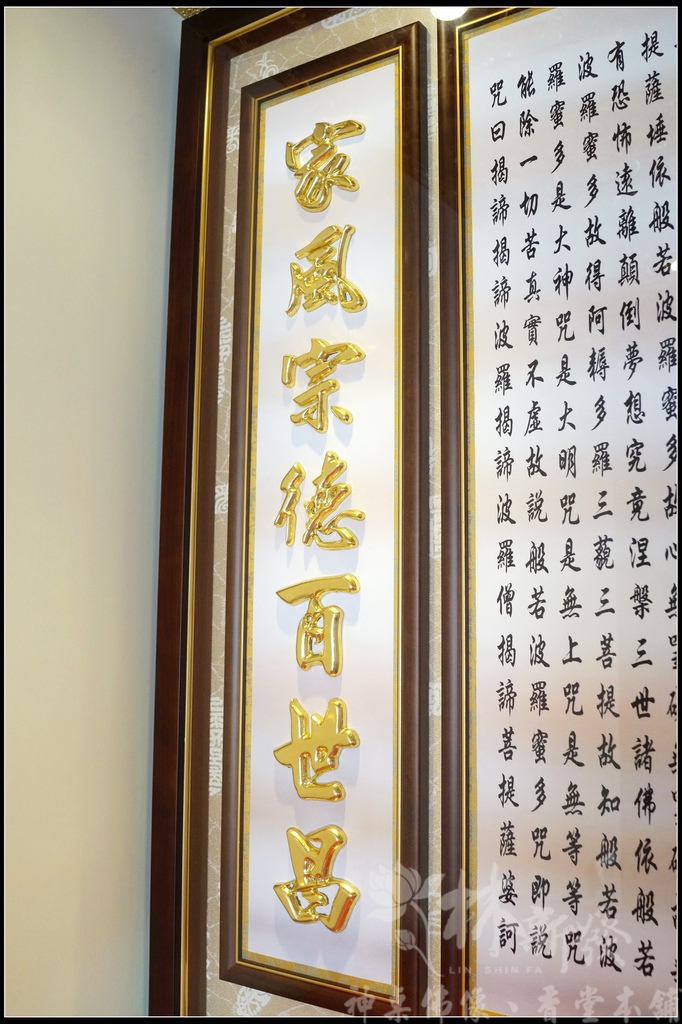 提薩埵依般若波羅蜜多故心無罣礙無罣礙故無
有恐怖遠離顛倒夢想究竟涅槃三世諸佛依般若
波羅蜜多故得阿耨多羅三藐三菩提故知般若波
羅蜜多是大神咒是大明咒是無上咒是無等等咒
能除一切苦真實不虛故說般若波羅蜜多咒即說
咒曰揭諦揭諦波羅揭諦波羅僧揭諦菩提薩婆訶
家風宗德百世昌
林新發
LIN SHIN FA
神桌佛像、香堂本舖